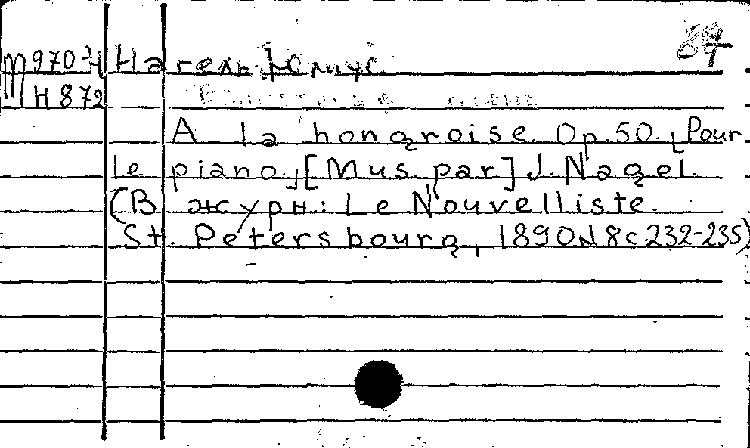 87
М970-Н Нагель Юлиус
Н872
A la hongroise. Op.50. [Pour
le piano] [Mus. par] J. Nagel.
(В журн: Le Nouvelliste.
St. Petersbourg, 1890 N8 с 232-235)